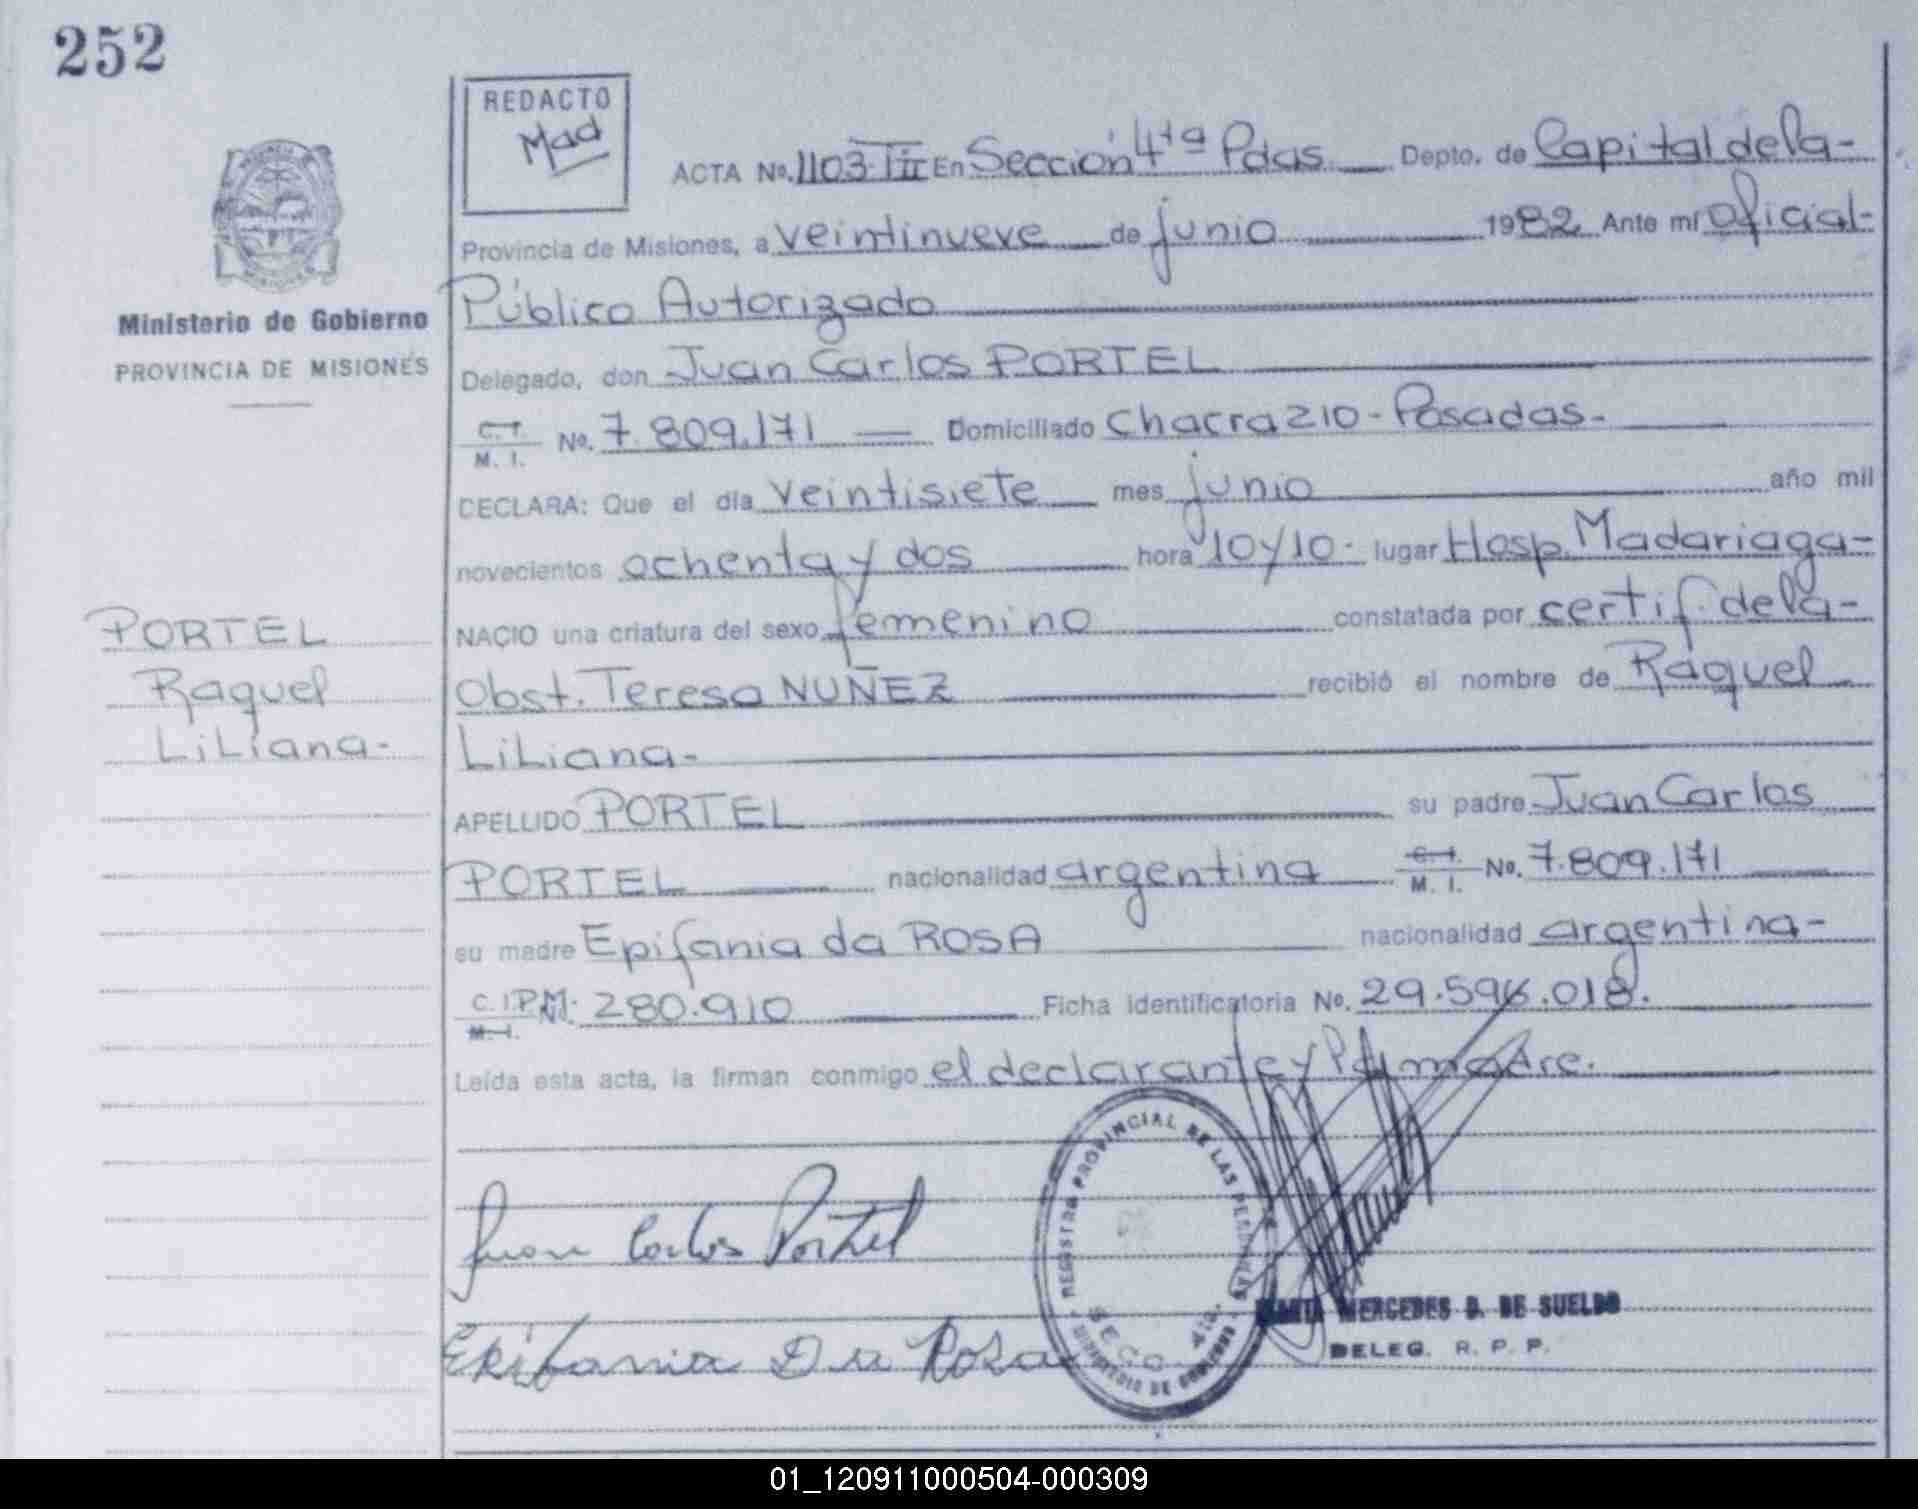 252
REDACTO
Mad
ACTA No. 1103-TII En Sección 4ta Pdas. Depto. de Capital de la-
Provincia de Misiones, a veintinueve de junio 1982 Ante mí oficial-
Público Autorizado
Ministerio de Gobierno
PROVINCIA DE MISIONES
Delegado, don Juan Carlos PORTEL
C.I. M. I. No. 7.809.171 — Domiciliado Chacra 210 - Posadas-
DECLARA: Que el día veintisiete mes junio año mil
novecientos ochenta y dos hora 10 y 10- lugar Hosp. Madariaga-
NACIO una criatura del sexo femenino constatada por certif. de la-
Obst. Teresa NUÑEZ recibió el nombre de Raquel
Liliana-
PORTEL
Raquel
Liliana-
APELLIDO PORTEL su padre Juan Carlos
PORTEL nacionalidad argentina C.I. M. I. No. 7.809.171
su madre Epifania da ROSA nacionalidad argentina-
C.I.P.M. M.I. 280.910 Ficha identificatoria No. 29.596.018.
Leída esta acta, la firman conmigo el declarante y la madre.
Juan Carlos Portel
Epifania Da Rosa
REGISTRO PROVINCIAL DE LAS PERSONAS
SECC. 4ta.
MINISTERIO DE GOBIERNO
MERCEDES D. DE SUELDO
DELEG. R. P. P.
01_120911000504-000309